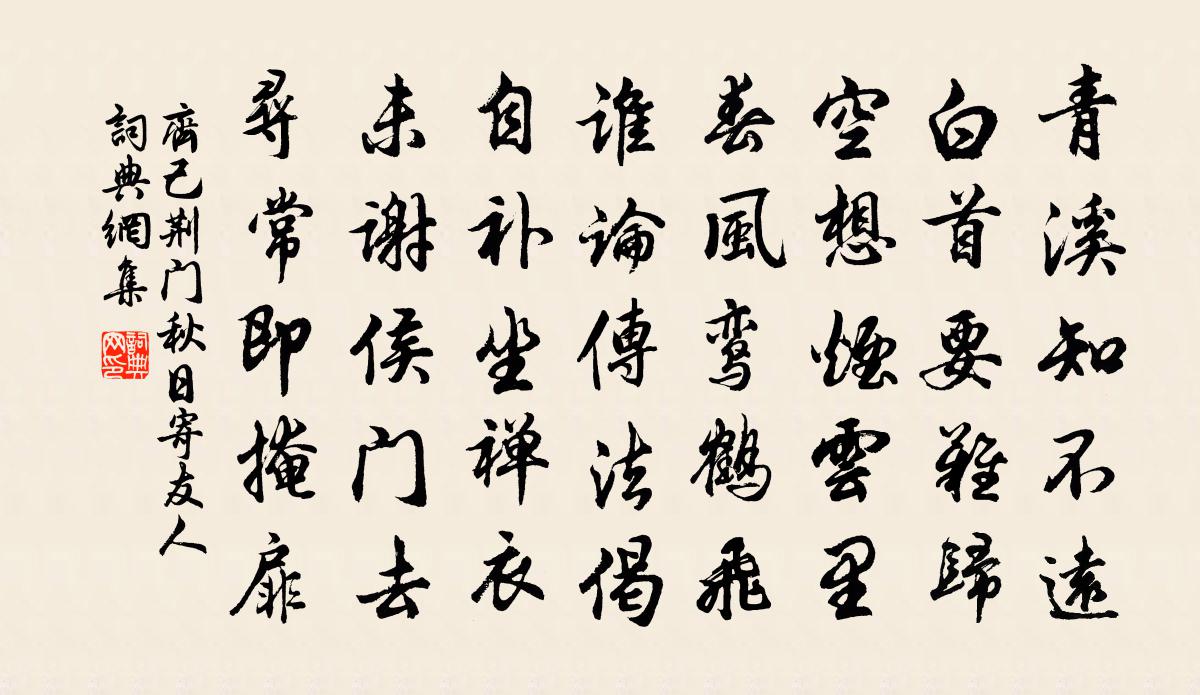 青溪知不遠
白首要難歸
空想煙雲里
春風鸾鶴飛
誰論傳法偈
自补坐禅衣
未谢侯门去
尋常即掩扉
齊己荆门秋日寄友人
詞典網集
詞典网印